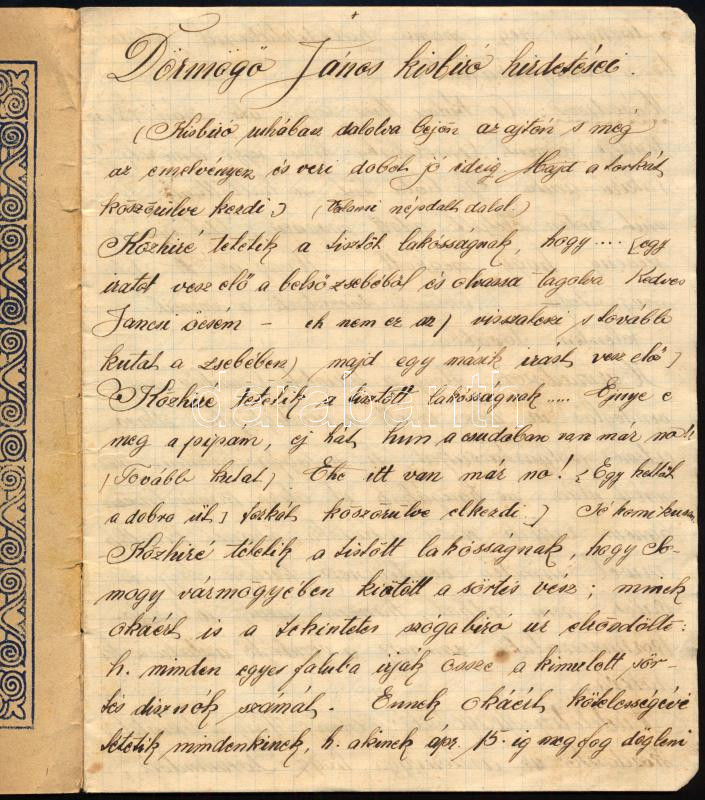 Dörmögő János kisbiró hirdetései.
(Kisbiró ruhában dalolva bejön az ajtón s még
az emelvényen és veri dobot jó ideig Majd a torkát
köszörülve kezdi) (Valami népdalt dalol.)
Közhiré tétetik a tisztöt lakósságnak, hogy .... [egy
iratot vesz elő a belső zsebéből és olvassa tagolva Kedves
Jancsi öcsém – eh nem ez az) visszateszi s tovább
kutat a zsebében) majd egy másik irást vesz elő)
Közhiré tétetik a tisztött lakósságnak..... Ejnye e
meg a pipám, ej hát hun a csudában van már na!
(Tovább kutat) Ehe itt van már no! (Egy kettőt
a dobra üt) torkát köszörülve elkezdi)
Közhiré tétetik a tistött lakósságnak, hogy So-
mogy vármögyében kiötött a sörtés vész; minek
okáért is a tekintetes szógabiró úr elröndölte:
h. minden egyes faluba irják össze a kimulott sör-
tés disznók számát. Ennek okáért kötelességévé
tétetik mindenkinek, h. akinek ápr. 15.-ig meg fog dögleni
darabanth